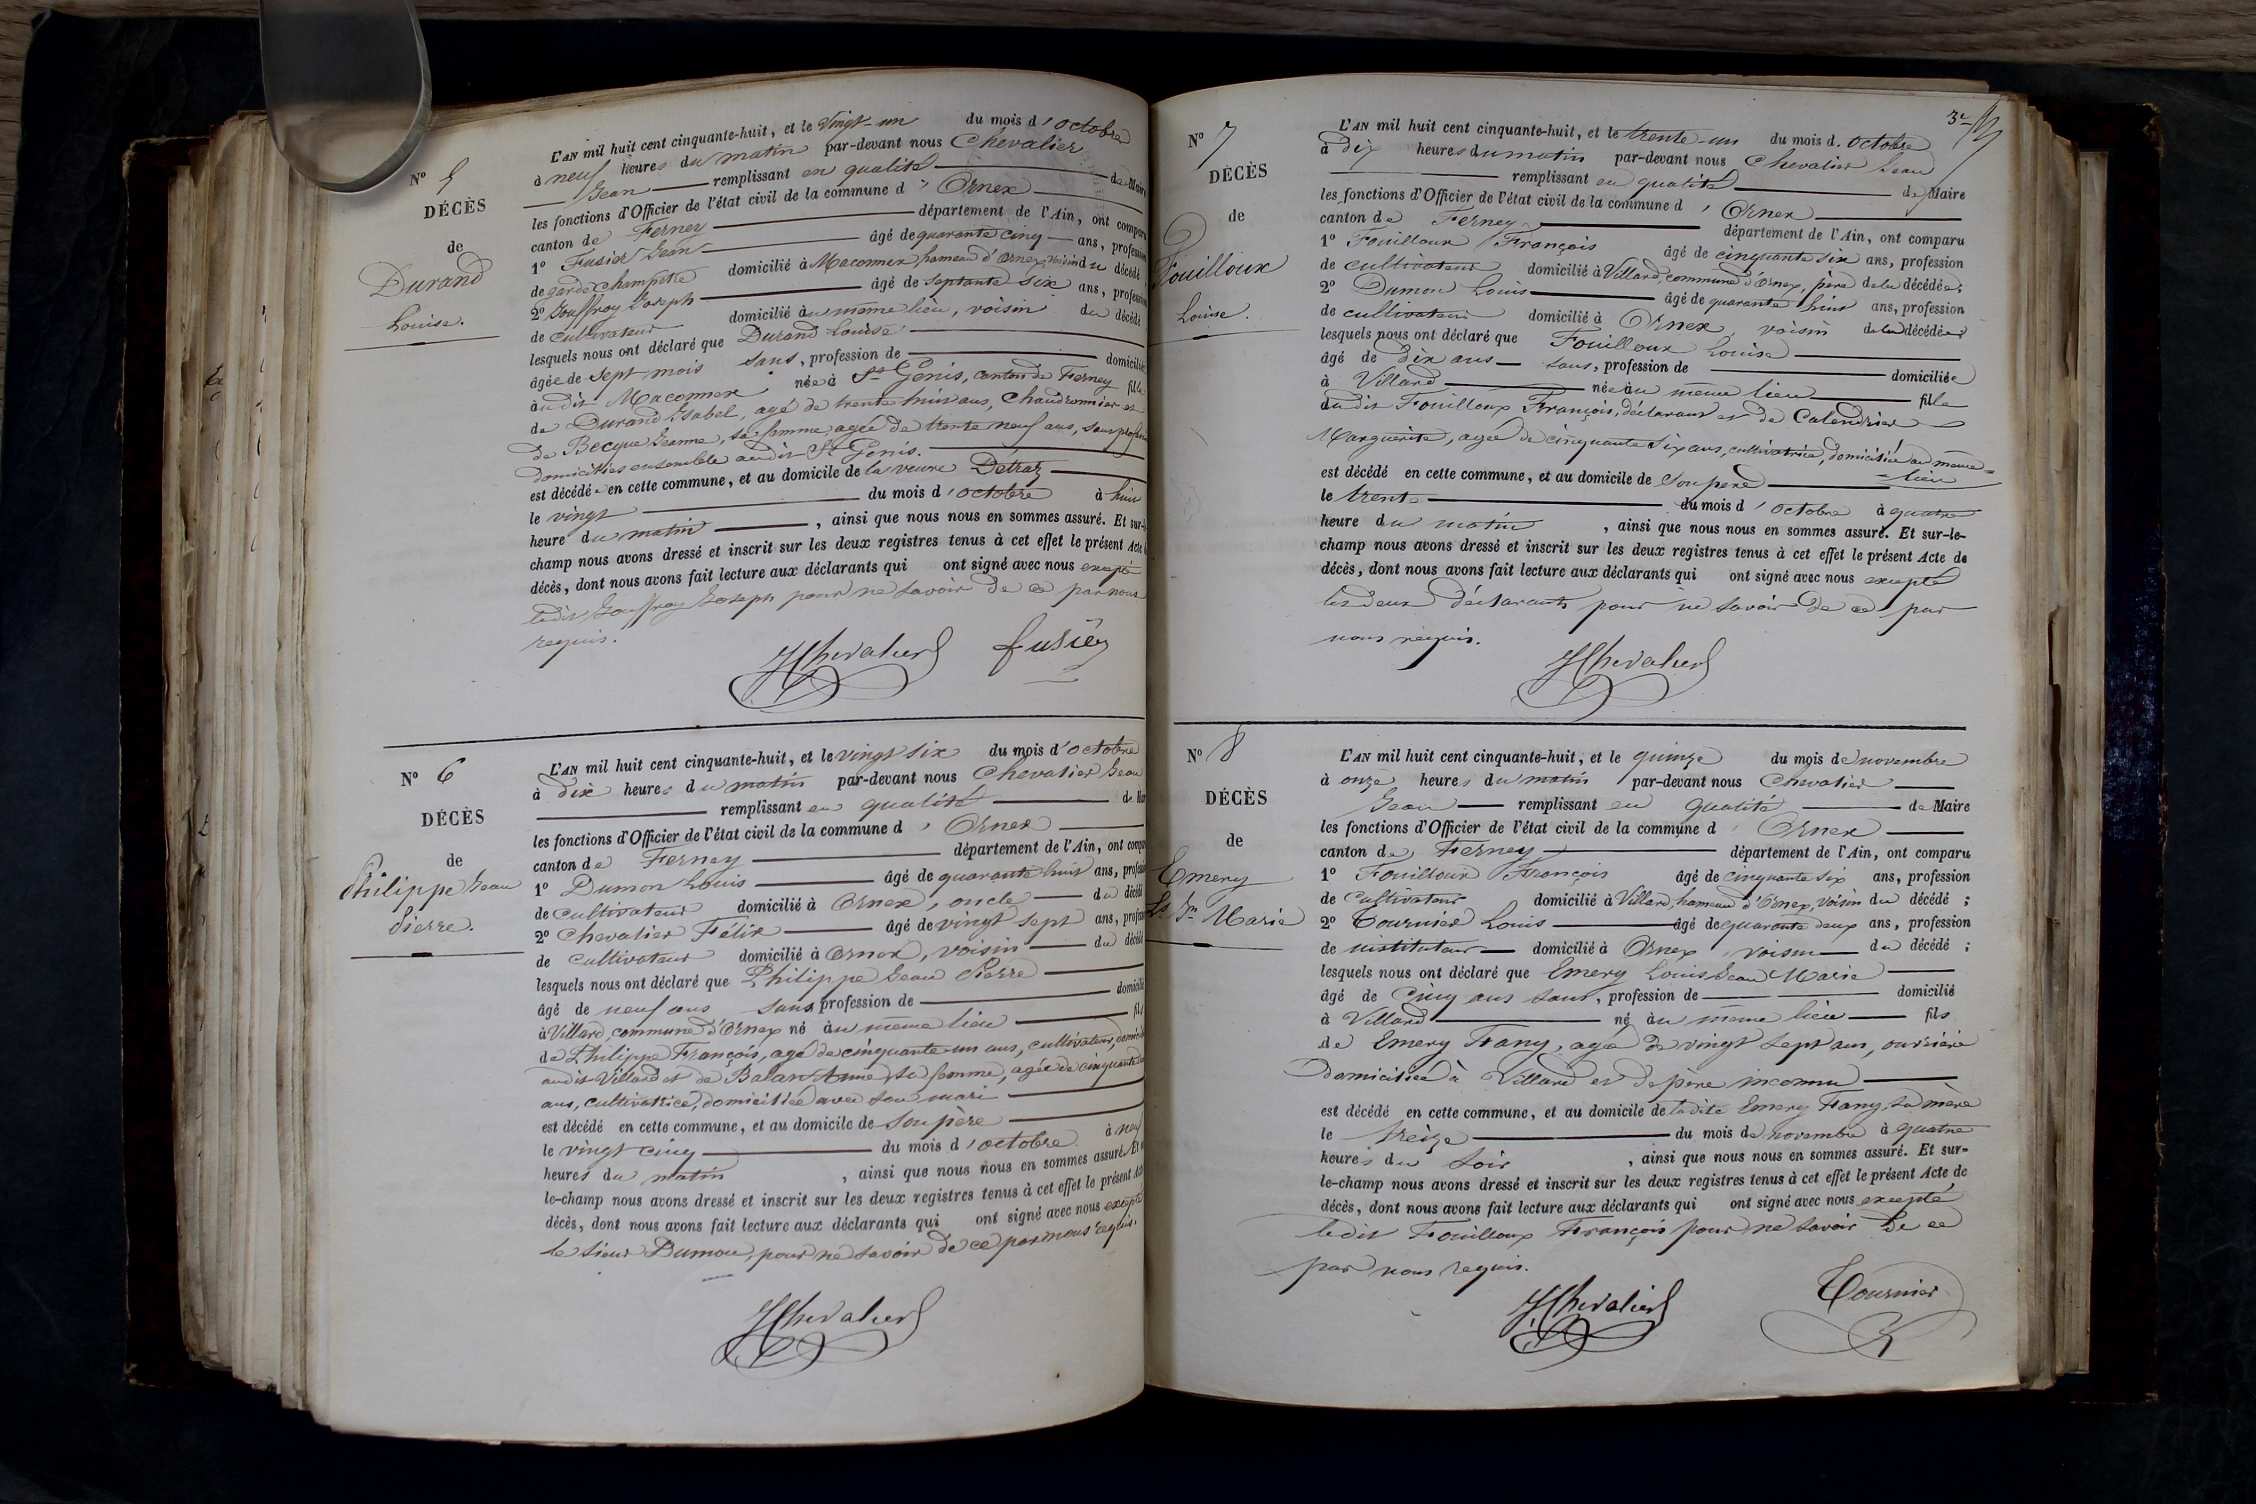 N° 5
DÉCÈS
de
Durand
Louise.
L'AN mil huit cent cinquante-huit, et le vingt-un du mois d'octobre
à neuf heures du matin par-devant nous Chevalier
Jean remplissant en qualité de Maire
les fonctions d'Officier de l'état civil de la commune d'Ornex
canton de Ferney département de l'Ain, ont comparu
1° Fusier Jean âgé de quarante cinq ans, profession
de garde champêtre domicilié à Maconnex hameau d'Ornex, voisin du décédé
2° Gouffroy Joseph âgé de septante six ans, profession
de cultivateur domicilié au même lieu, voisin du décédé
lesquels nous ont déclaré que Durand Louise
âgée de sept mois sans, profession de domiciliée
audit Maconnex née à St Genis, canton de Ferney fille
de Durand Isabel, agé de trente huit ans, Chaudronnier et
de Becque Jeanne, sa femme agée de trente neuf ans, sans profession
domiciliés ensemble audit St Genis.
est décédée en cette commune, et au domicile de la veuve Detraz
le vingt du mois d'octobre à huit
heure du matin, ainsi que nous nous en sommes assuré. Et sur-le-
champ nous avons dressé et inscrit sur les deux registres tenus à cet effet le présent Acte de
décès, dont nous avons fait lecture aux déclarants qui ont signé avec nous excepté
ledit Gouffroy Joseph pour ne savoir de ce par nous
requis.
JChevalier Fusier
N° 6
DÉCÈS
de
Philippe Jean
Pierre.
L'AN mil huit cent cinquante-huit, et le vingt six du mois d'octobre
à dix heures du matin par-devant nous Chevalier Jean
remplissant en qualité de Maire
les fonctions d'Officier de l'état civil de la commune d'Ornex
canton de Ferney département de l'Ain, ont comparu
1° Dumon Louis âgé de quarante huit ans, profession
de cultivateur domicilié à Ornex, oncle du décédé
2° Chevalier Félix âgé de vingt sept ans, profession
de cultivateur domicilié à Ornex, voisin du décédé
lesquels nous ont déclaré que Philippe Jean Pierre
âgé de neuf ans sans profession de domicilié
à Villard, commune d'Ornex né au même lieu fils
de Philippe François, agé de cinquante un ans, cultivateur, domicilié
audit Villard et de Balan Anne, sa femme, agée de cinquante
ans, cultivatrice, domiciliée avec son mari
est décédé en cette commune, et au domicile de son père
le vingt cinq du mois d'octobre à neuf
heures du matin, ainsi que nous nous en sommes assuré. Et sur-
le-champ nous avons dressé et inscrit sur les deux registres tenus à cet effet le présent Acte
décès, dont nous avons fait lecture aux déclarants qui ont signé avec nous excepté
le sieur Dumon, pour ne savoir de ce par nous requis.
JChevalier
3e
N° 7
DÉCÈS
de
Fouilloux
Louise.
L'AN mil huit cent cinquante-huit, et le trente-un du mois d. octobre
à dix heures du matin par-devant nous Chevalier Jean
remplissant en qualité de Maire
les fonctions d'Officier de l'état civil de la commune d'Ornex
canton de Ferney département de l'Ain, ont comparu
1° Fouilloux François âgé de cinquante six ans, profession
de cultivateur domicilié à Villard, commune d'Ornex, père de la décédée;
2° Dumon Louis âgé de quarante huit ans, profession
de cultivateur domicilié à Ornex, voisin de la décédée
lesquels nous ont déclaré que Fouilloux Louise
âgé de dix ans sans, profession de domiciliée
à Villard née au même lieu fille
dudit Fouilloux François, déclarant et de Calendrier
Marguerite, agée de cinquante six ans, cultivatrice, domiciliée au même
lieu
est décédé en cette commune, et au domicile de son père
le trente du mois d'octobre à quatre
heure du matin, ainsi que nous nous en sommes assuré. Et sur-le-
champ nous avons dressé et inscrit sur les deux registres tenus à cet effet le présent Acte de
décès, dont nous avons fait lecture aux déclarants qui ont signé avec nous excepté
les deux déclarants pour ne savoir de ce par
nous requis.
JChevalier
N° 8
DÉCÈS
de
Emery
Ls Jn Marie
L'AN mil huit cent cinquante-huit, et le quinze du mois de novembre
à onze heures du matin par-devant nous Chevalier
Jean remplissant en qualité de Maire
les fonctions d'Officier de l'état civil de la commune d'Ornex
canton de Ferney département de l'Ain, ont comparu
1° Fouilloux François âgé de cinquante six ans, profession
de cultivateur domicilié à Villard, hameau d'Ornex, voisin du décédé;
2° Tournier Louis âgé de quarante deux ans, profession
de instituteur domicilié à Ornex, voisin du décédé;
lesquels nous ont déclaré que Emery Louis Jean Marie
âgé de cinq ans sans, profession de domicilié
à Villard né au même lieu fils
de Emery Fany, agée de vingt sept ans, ouvrière
domiciliée à Villard et de père inconnu
est décédé en cette commune, et au domicile de ladite Emery Fany, sa mère
le treize du mois de novembre à quatre
heures du soir, ainsi que nous nous en sommes assuré. Et sur-
le-champ nous avons dressé et inscrit sur les deux registres tenus à cet effet le présent Acte de
décès, dont nous avons fait lecture aux déclarants qui ont signé avec nous excepté
ledit Fouilloux François pour ne savoir de ce
par nous requis.
JChevalier Tournier